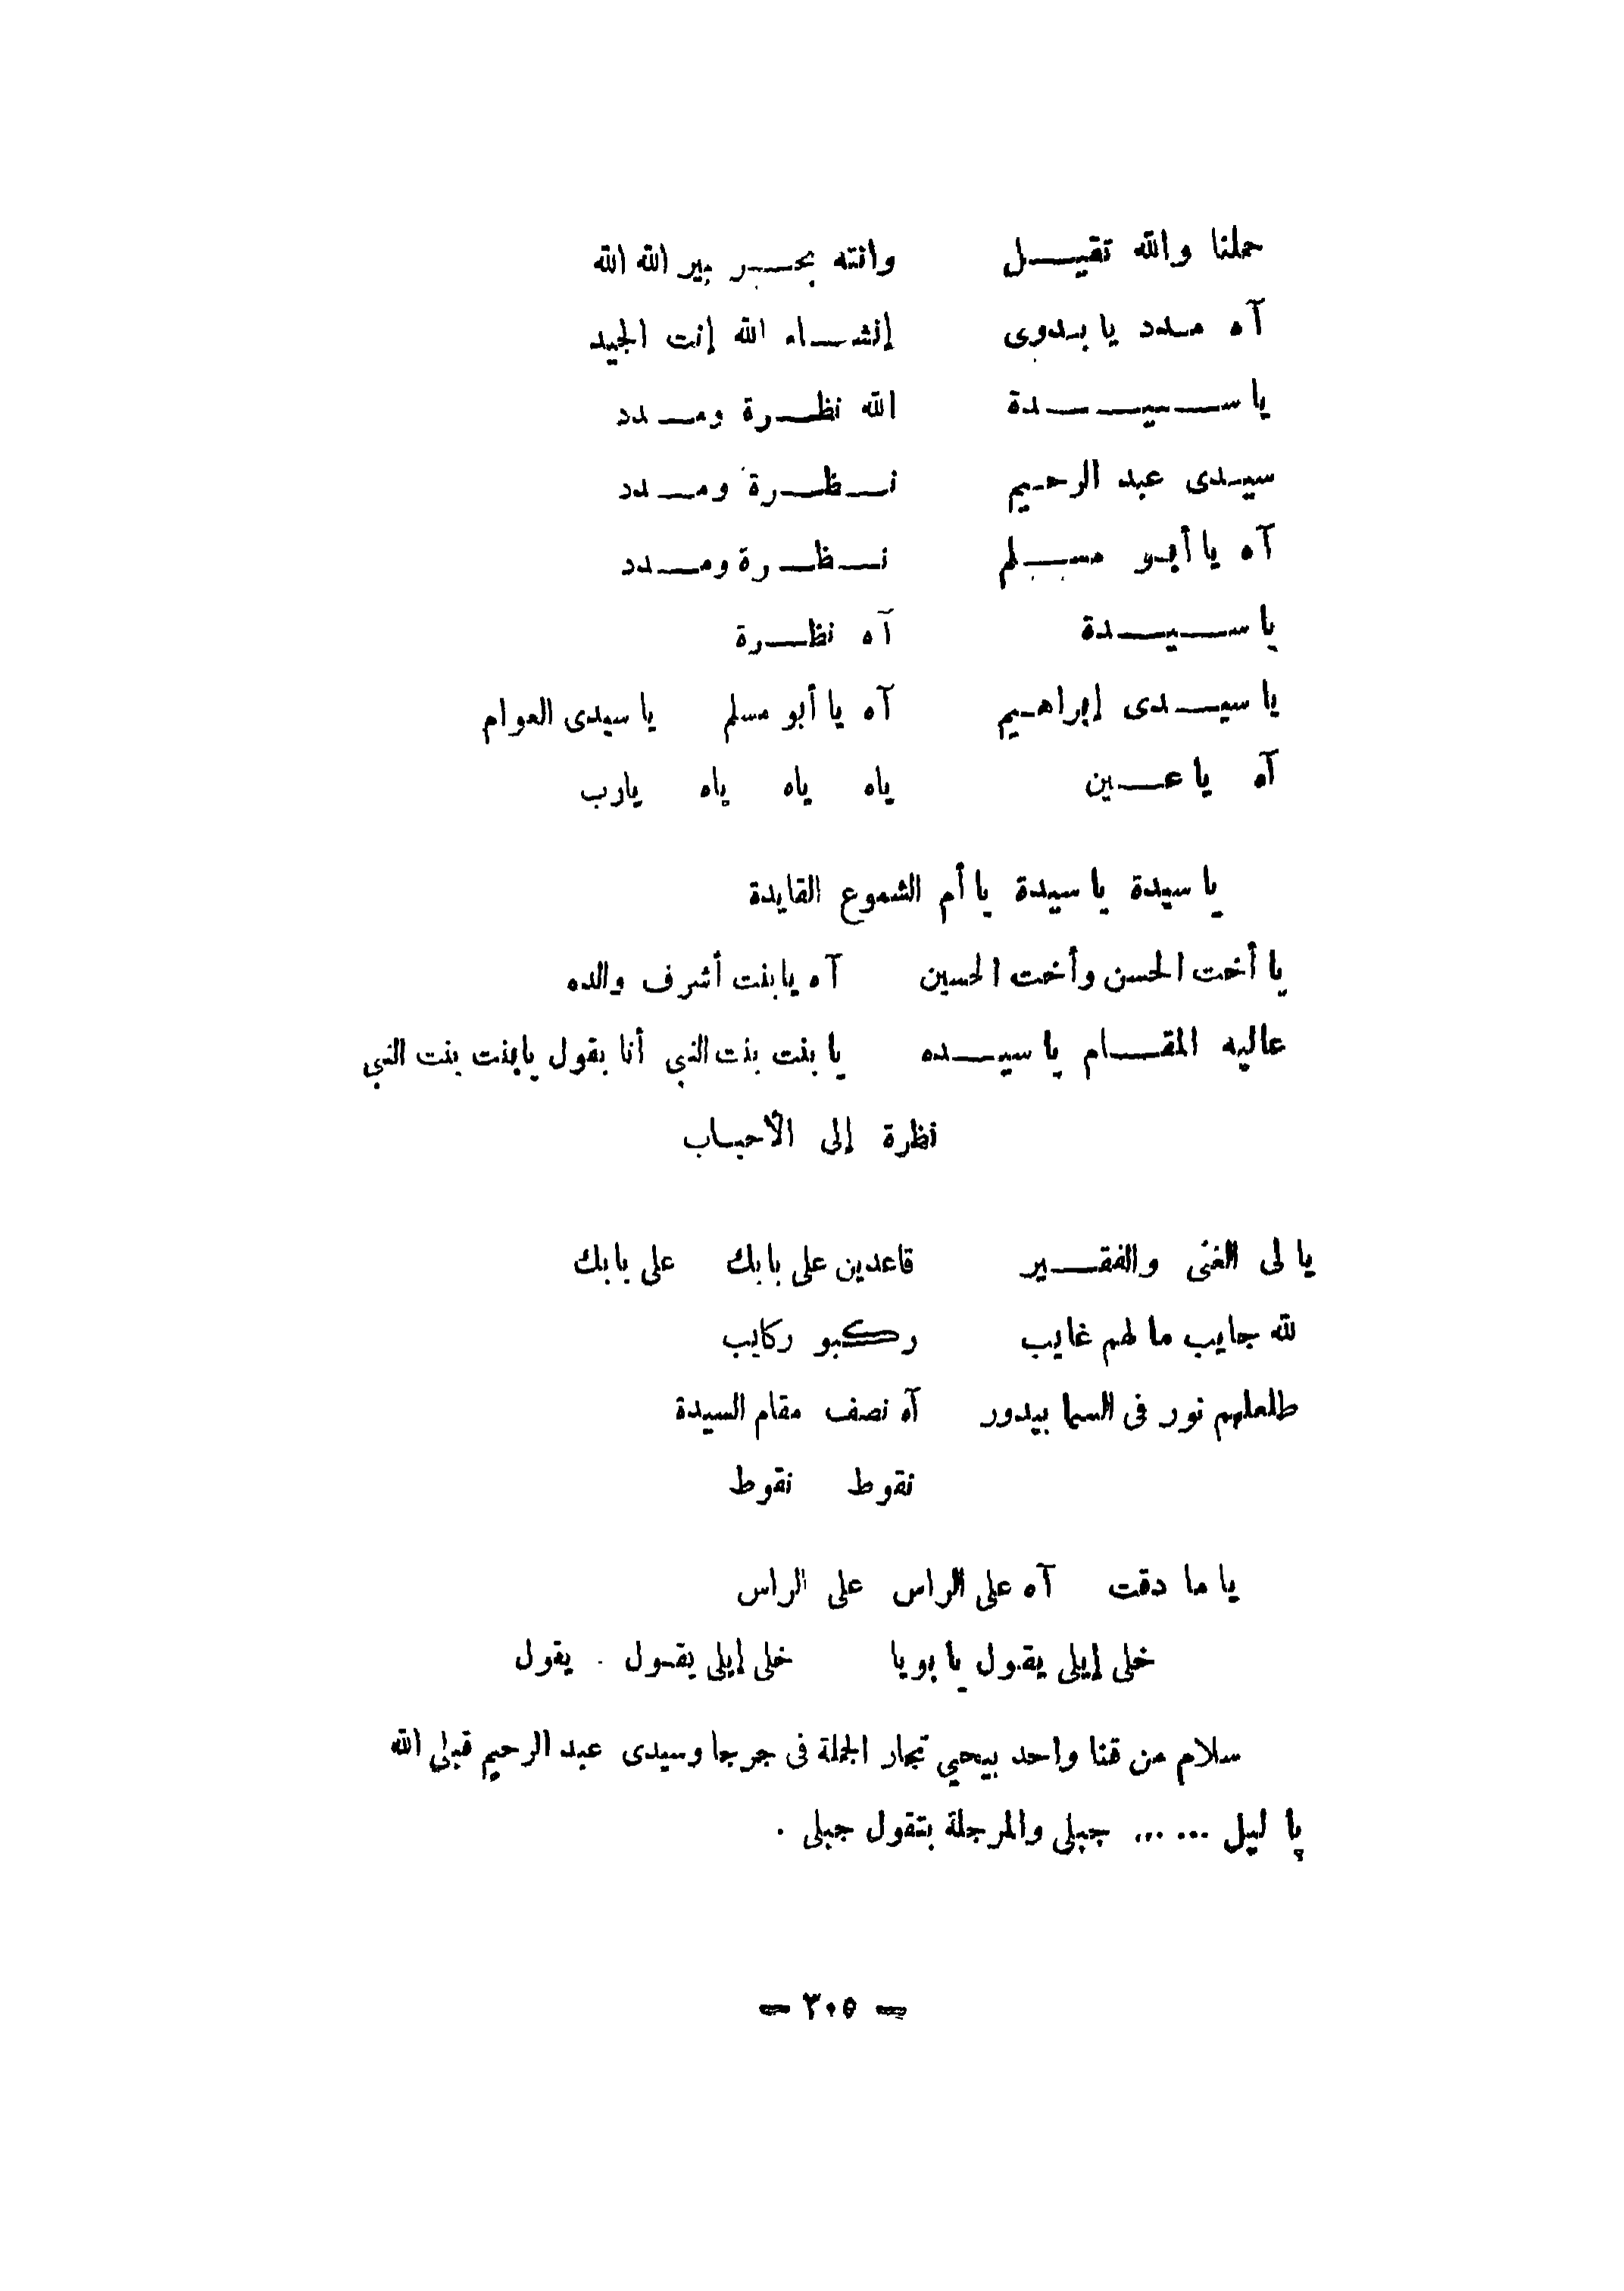 حملنا والله تقيـــل وانته بحـــر بير الله الله
آه مـدد يا بـدوى إنشـــاء الله إنت الجيد
يا ســـيـــدة الله نظــرة ومــدد
سيـدى عبد الرحـيم نــظــرة ومــدد
آه يا أبـو مســلم نــظــرة ومــدد
يا ســـيــدة آه نظــرة
يا سيــدى إبراهـيم آه يا أبو مسلم يا سيدى العوام
آه يا عــين ياه ياه ياه يارب
يا سيدة يا سيدة يا أم الشموع القايدة
يا أخت الحسن وأخت الحسين آه يا بنت أشرف والده
عاليه المقــام يا سيــده يا بنت بنت النبي أنا بقول يا بنت بنت النبي
نظرة إلى الأحبـاب
يا لى الغنى والفقــير قاعدين على بابك على بابك
لله جايب ما لهم غايب ركبو ركايب
طلعلهم نور فى السما بيدور آه نصف مقام السيدة
نقوط نقوط
يا ما دقت آه على الراس على الراس
خلى إيلى يقول يا بويا خلى إيلى يقـول . يقول
سلام من قنا واحد بيحيي تجار الجملة فى جرجا وسيدى عبد الرحيم قبلى الله
يا ليل ... ... جبلى والمرجلة بتقول جبلى .
— ٣٠٥ —